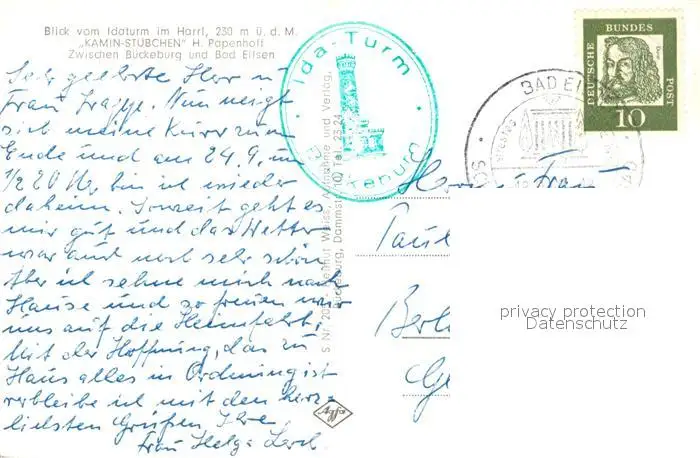 Blick vom Idaturm im Harrl, 230 m ü. d. M.
„KAMIN-STÜBCHEN" H. Papenhoff
Zwischen Bückeburg und Bad Eilsen
Sehr geehrte Herr u
Frau Trappe. Nun neigt
sich meine Kurr zum
Ende und am 24.9. um
1/2 20 Uhr bin ich wieder
daheim. Soweit geht es
mir gut und das Wetter
war auch noch sehr schön.
Aber ich sehne mich nach
Hause und so freuen wir
uns auf die Heimfahrt.
Mit der Hoffnung, das zu
Haus alles in Ordnung ist
verbleibe ich mit den herz-
lichsten Grüßen, Ihre
Frau Helga
Ida-Turm
Bückeburg
Weiss, Aufnahme und Verlag,
Bückeburg, Dammst
Agfa
BAD EI
DEUTSCHE BUNDES POST
10
Herrn u. Frau
Paul
Berli
privacy protection
Datenschutz